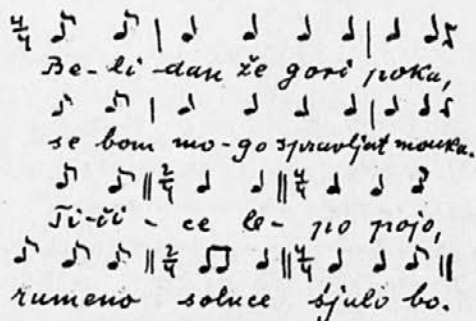 4/4
Be-li-dan že gori poka,
se bom mo-go spravljat mouka.
2/4 4/4
Ti-či-ce le-po pojo,
2/4 4/4
rumeno solnce sjulo bo.